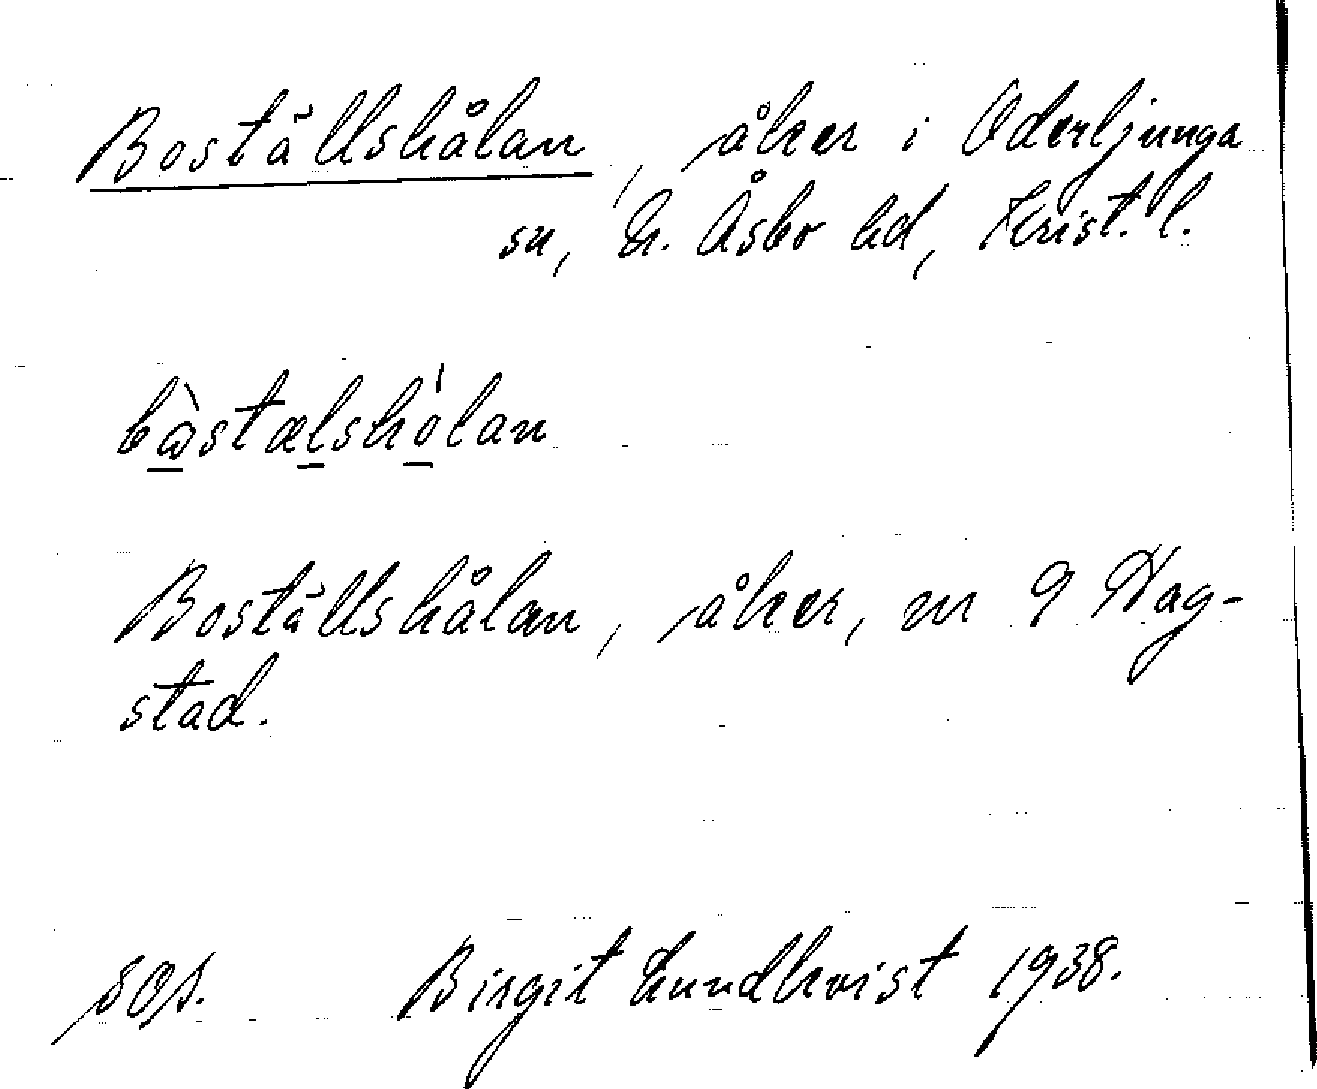 Boställshålan, åker i Oderljunga
sn, N. Åsbo hd, Krist. l.
bòstælshólan
Boställshålan, åker, nr 9 Hag-
stad.
SOA. Birgit Lundkvist 1938.